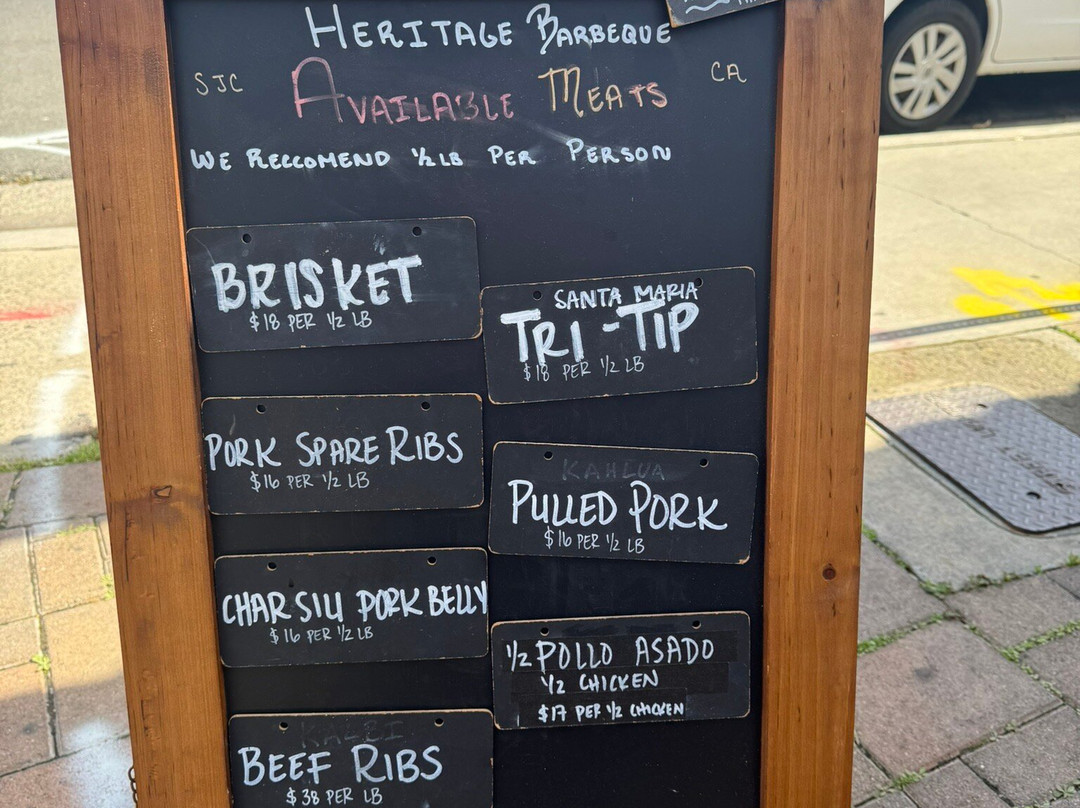 HERITAGE BARBEQUE
SJC
AVAILABLE MEATS
CA
WE RECCOMEND 1/2 LB PER PERSON
BRISKET
$18 PER 1/2 LB
SANTA MARIA
TRI-TIP
$18 PER 1/2 LB
PORK SPARE RIBS
$16 PER 1/2 LB
KAHLUA
PULLED PORK
$16 PER 1/2 LB
CHAR SIU PORK BELLY
$16 PER 1/2 LB
1/2 POLLO ASADO
1/2 CHICKEN
$17 PER 1/2 CHICKEN
KALBI
BEEF RIBS
$38 PER LB